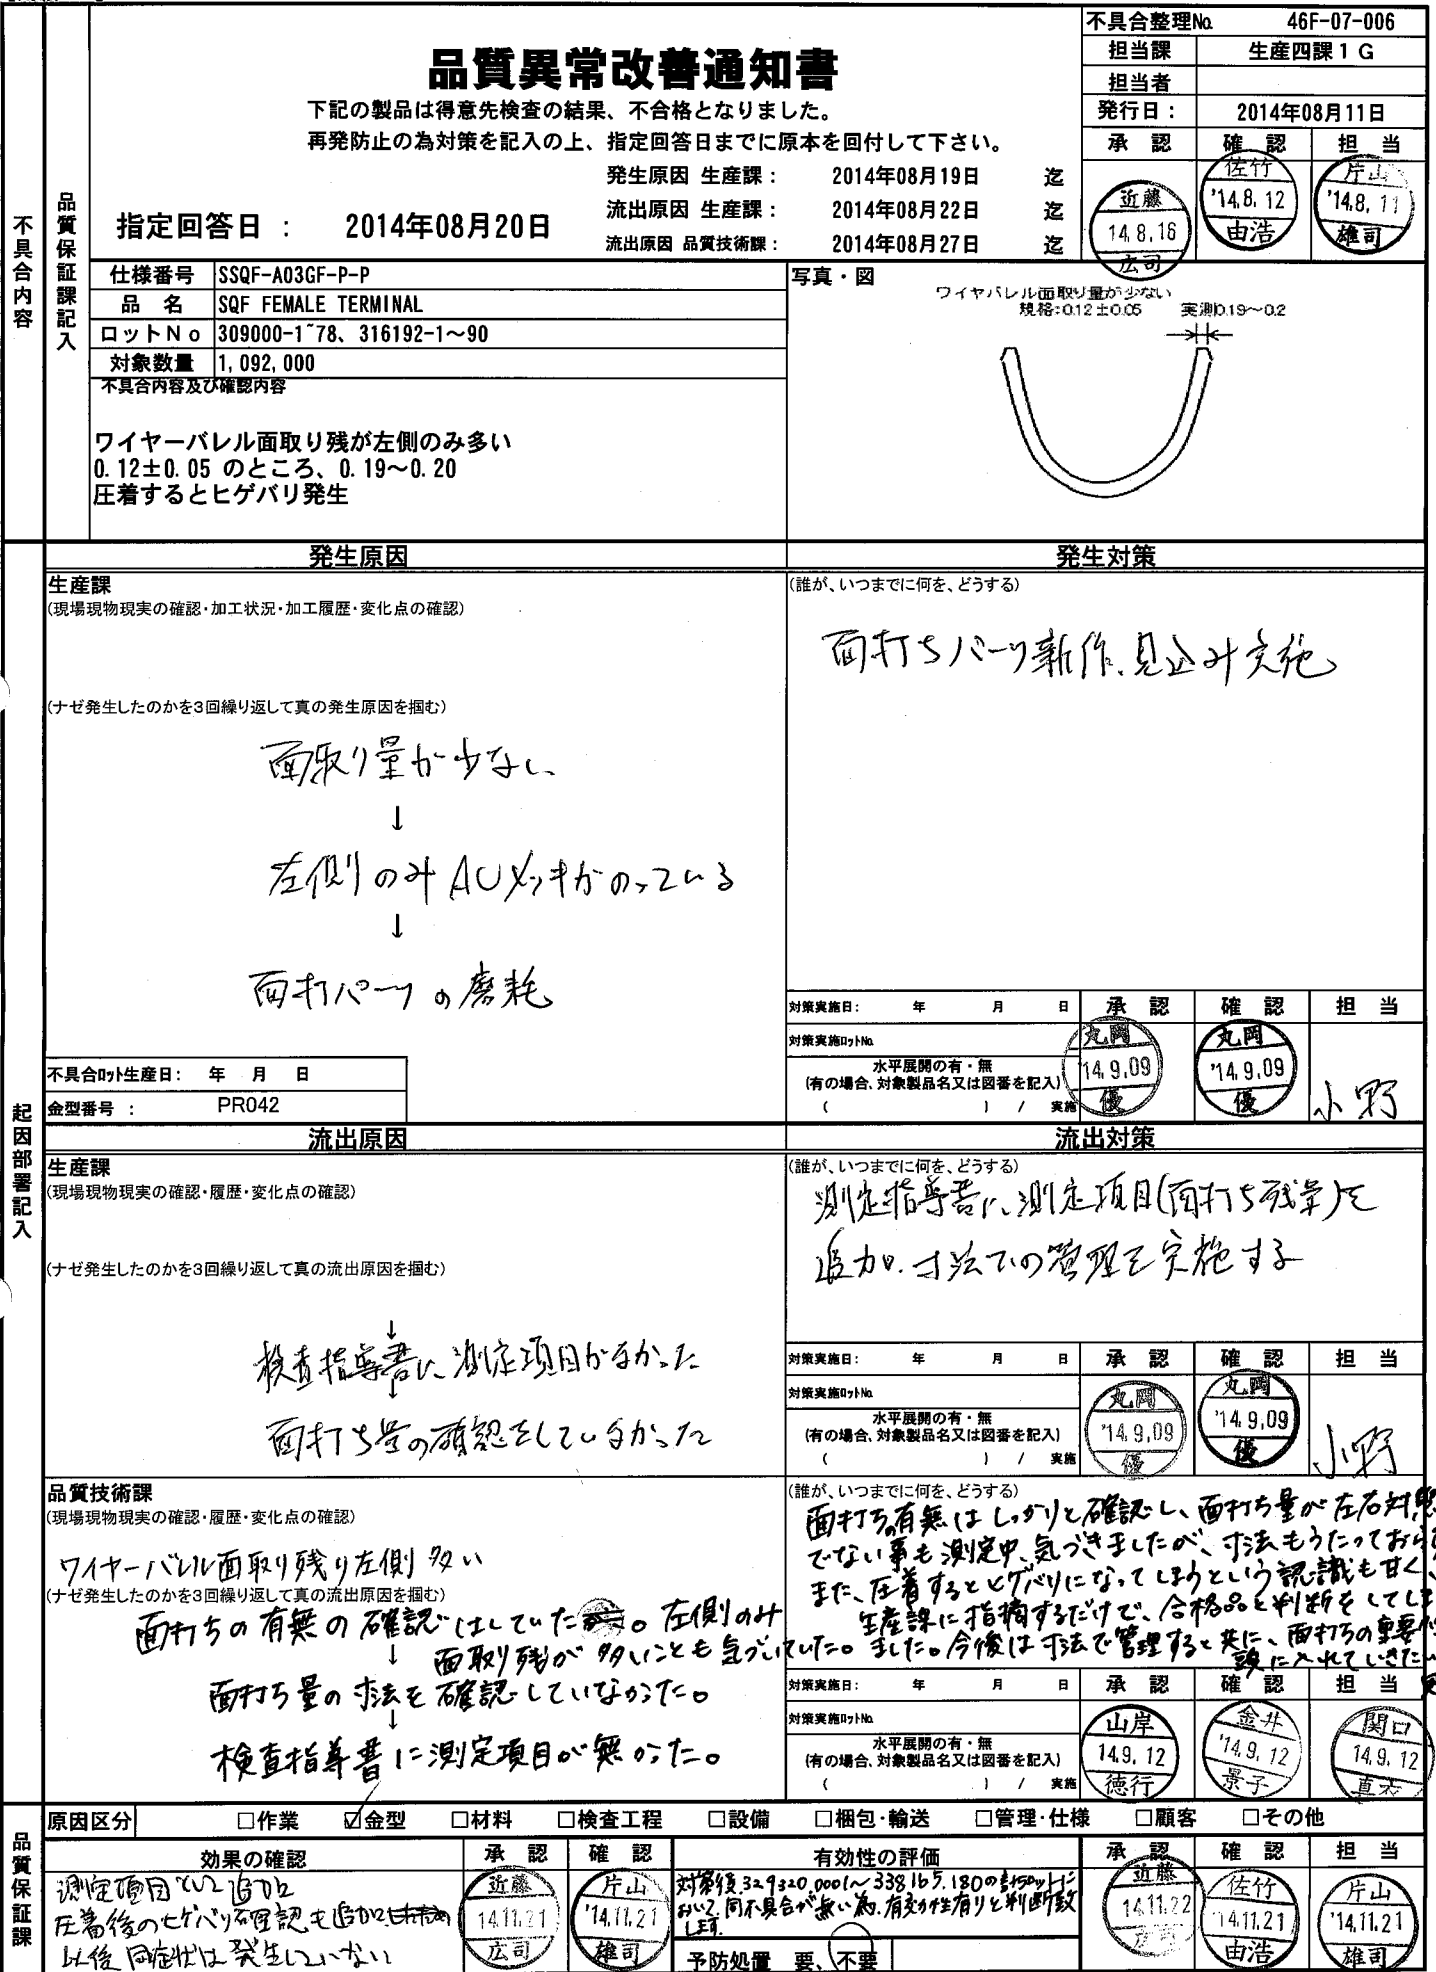 不具合整理No. 46F-07-006
担当課 生産四課1G
担当者
発行日： 2014年08月11日
承認 確認 担当
近藤 14.8.16 広司
佐竹 '14.8.12 由浩
片山 '14.8.11 雄司
品質異常改善通知書
下記の製品は得意先検査の結果、不合格となりました。
再発防止の為対策を記入の上、指定回答日までに原本を回付して下さい。
発生原因 生産課： 2014年08月19日 迄
流出原因 生産課： 2014年08月22日 迄
流出原因 品質技術課： 2014年08月27日 迄
指定回答日： 2014年08月20日
不具合内容
品質保証課記入
仕様番号 SSQF-A03GF-P-P
品名 SQF FEMALE TERMINAL
ロットNo 309000-1~78、316192-1～90
対象数量 1,092,000
不具合内容及び確認内容
ワイヤーバレル面取り残が左側のみ多い
0.12±0.05 のところ、0.19～0.20
圧着するとヒゲバリ発生
写真・図
ワイヤバレル面取り量が少ない
規格:0.12±0.05 実測0.19～0.2
起因部署記入
発生原因
生産課
(現場現物現実の確認・加工状況・加工履歴・変化点の確認)
(ナゼ発生したのかを3回繰り返して真の発生原因を掴む)
面取り量が少ない
↓
左側のみAUメッキがのっている
↓
面打パーツの磨耗
不具合ロット生産日： 年 月 日
金型番号 ： PR042
発生対策
(誰が、いつまでに何を、どうする)
面打ちパーツ新作、見込み実施
対策実施日： 年 月 日
対策実施ロットNo.
水平展開の有・無
(有の場合、対象製品名又は図番を記入)
( ) / 実施
承認 確認 担当
丸岡 '14.9.09 優
丸岡 '14.9.09 優
小野
流出原因
生産課
(現場現物現実の確認・履歴・変化点の確認)
(ナゼ発生したのかを3回繰り返して真の流出原因を掴む)
↓
検査指導書に、測定項目がなかった
↓
面打ち量の確認をしていなかった
流出対策
(誰が、いつまでに何を、どうする)
測定指導書に、測定項目(面打ち残量)を
追加、寸法での管理を実施する
対策実施日： 年 月 日
対策実施ロットNo.
水平展開の有・無
(有の場合、対象製品名又は図番を記入)
( ) / 実施
承認 確認 担当
丸岡 '14.9.09 優
丸岡 '14.9.09 優
小野
品質技術課
(現場現物現実の確認・履歴・変化点の確認)
ワイヤーバレル面取り残り左側多い
(ナゼ発生したのかを3回繰り返して真の流出原因を掴む)
面打ちの有無の確認はしていた。左側のみ
面取り残が多いことも気づいていた。
↓
面打ち量の寸法を確認していなかった。
↓
検査指導書に測定項目が無かった。
(誰が、いつまでに何を、どうする)
面打ちの有無はしっかりと確認し、面打ち量が左右対
でない事も測定中、気づきましたが、寸法もうたっておら
また、圧着するとヒゲバリになってしまうという認識も甘く、
生産課に指摘するだけで、合格品と判断をしてし
ました。今後は寸法で管理すると共に、面打ちの重要
頭に入れていきたい
対策実施日： 年 月 日
対策実施ロットNo.
水平展開の有・無
(有の場合、対象製品名又は図番を記入)
( ) / 実施
承認 確認 担当
山岸 14.9.12 徳行
金井 '14.9.12 景子
関口 14.9.12
品質保証課
原因区分 □作業 ☑金型 □材料 □検査工程 □設備 □梱包・輸送 □管理・仕様 □顧客 □その他
効果の確認
測定項目として追加
圧着後のヒゲバリ確認も追加
以後同症状は発生していない
承認 確認
近藤 14.11.21 広司
片山 '14.11.21 雄司
有効性の評価
対策後、329320.0001～338165.180の計50ロットに
おいて、同不具合が無い為、有効性有りと判断致
します。
予防処置 要、不要
承認 確認 担当
近藤 14.11.22 広司
佐竹 '14.11.21 由浩
片山 '14.11.21 雄司